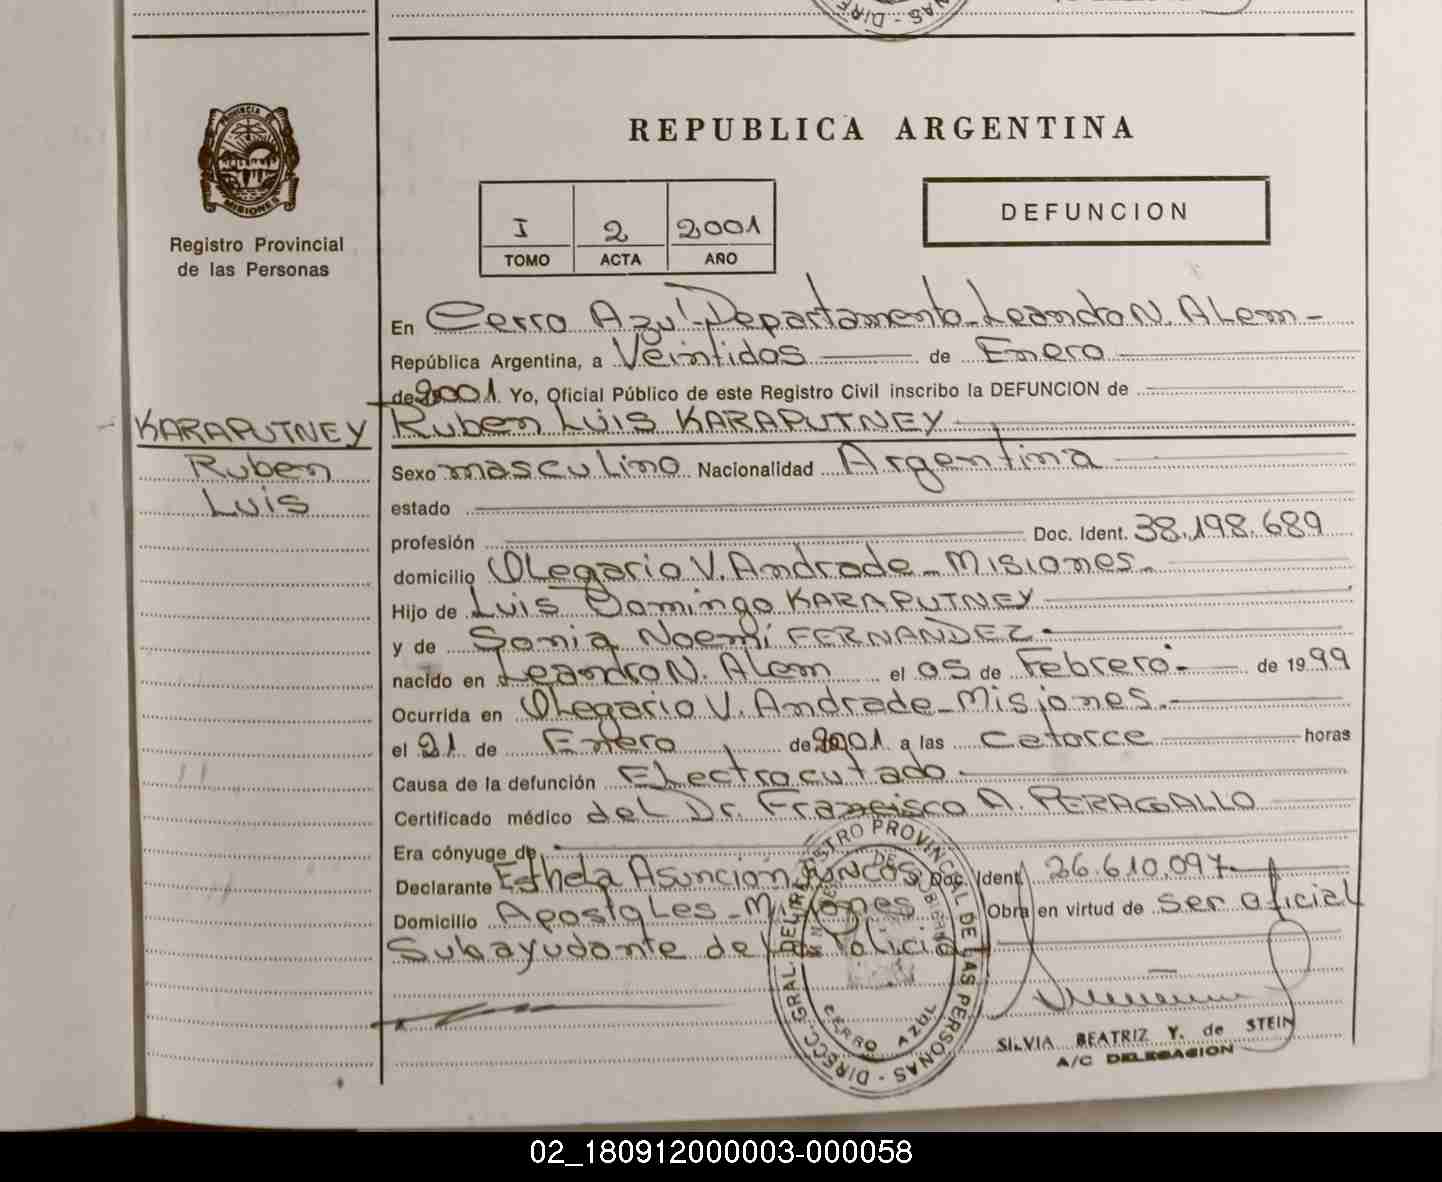 REPUBLICA ARGENTINA
PROVINCIA DE
MISIONES
Registro Provincial
de las Personas
I 2 2001
TOMO ACTA AÑO
DEFUNCION
En Cerro Azul-Departamento-Leandro N. Alem-
República Argentina, a Veintidos de Enero
de 2001. Yo, Oficial Público de este Registro Civil inscribo la DEFUNCION de
KARAPUTNEY Ruben Luis KARAPUTNEY
Ruben
Luis
Sexo masculino Nacionalidad Argentina
estado
profesión Doc. Ident. 38.198.689
domicilio Olegario V. Andrade - Misiones.-
Hijo de Luis Domingo KARAPUTNEY
y de Sonia Noemí FERNANDEZ.-
nacido en Leandro N. Alem el 05 de Febrero.- de 1999
Ocurrida en Olegario V. Andrade - Misiones.-
el 21 de Enero de 2001 a las Catorce horas
Causa de la defunción Electrocutado.-
Certificado médico del Dr. Francisco A. PERAGALLO
Era cónyuge de
Declarante Esthela Asuncion JUNCOS Doc. Ident. 26.610.097
Domicilio Apostoles - Misiones Obra en virtud de ser oficial
Subayudante de la Policia
DIRECC. GRAL. DEL REGISTRO PROVINCIAL DE LAS PERSONAS -
CERRO AZUL
SILVIA BEATRIZ Y. de STEIN
A/C DELEGACION
02_180912000003-000058